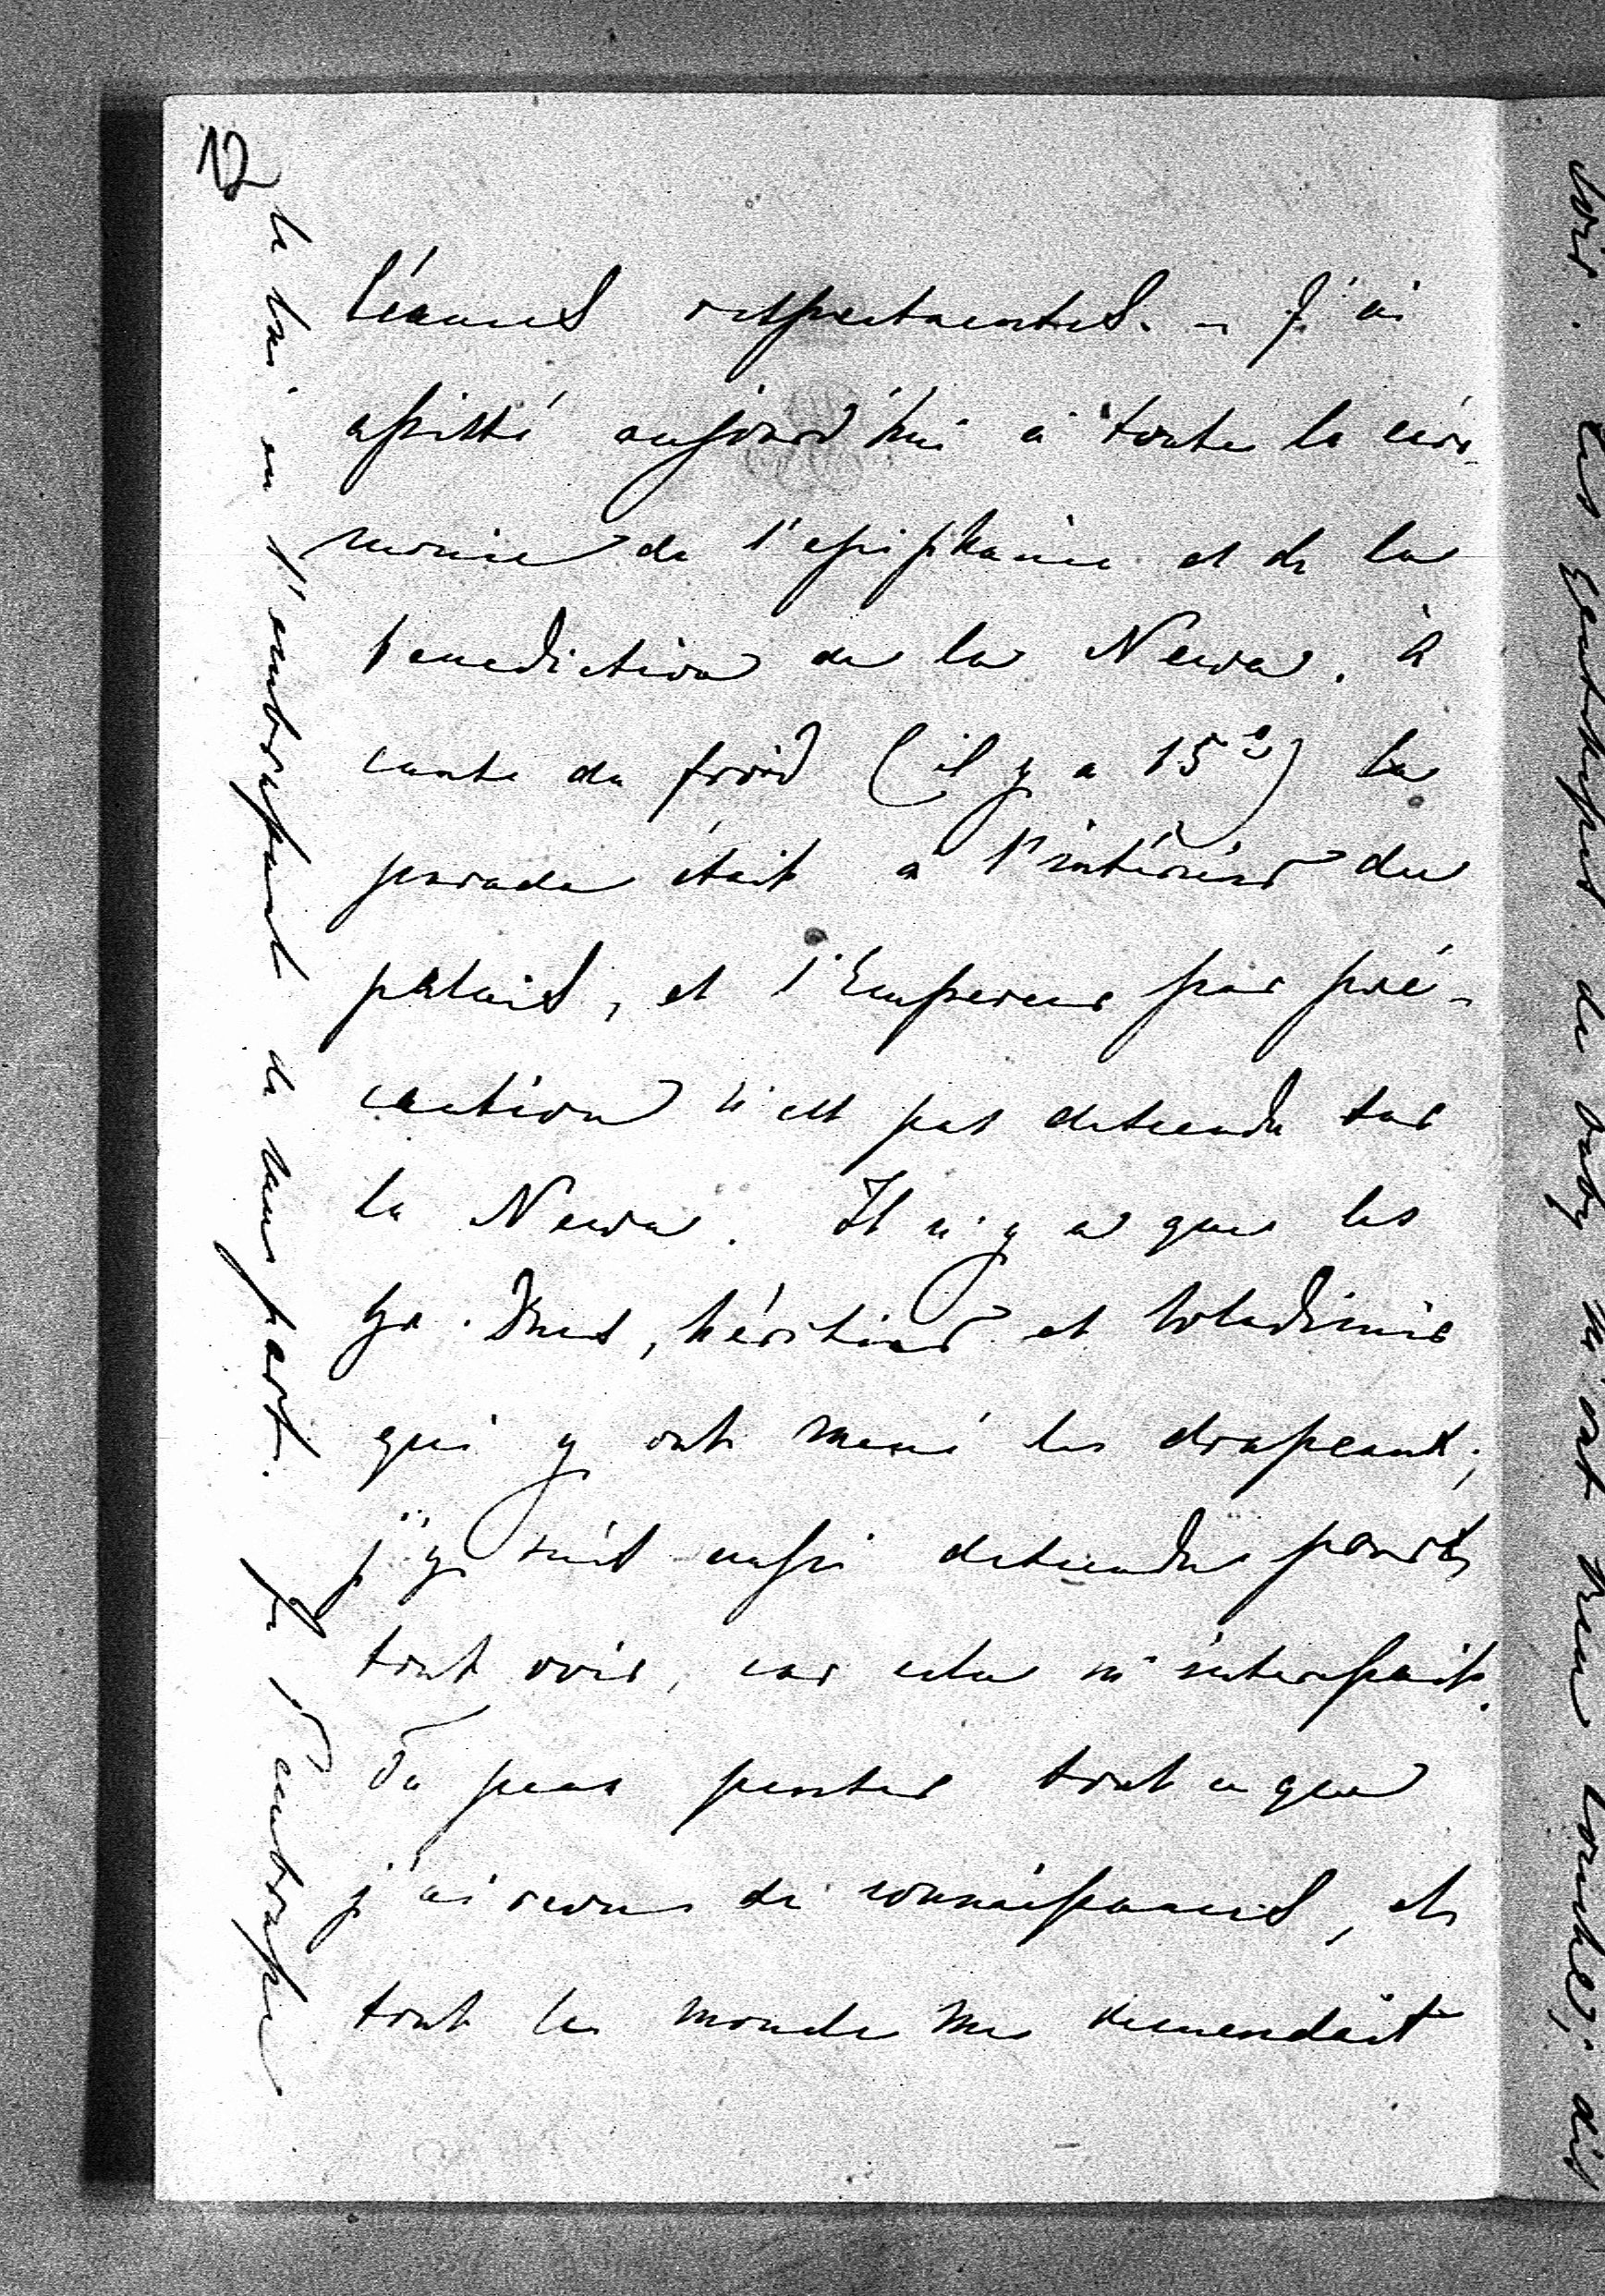 12
séances respectueuses. – J'ai
assisté aujourd'hui à toute la céré-
monie de l'epiphanie et de la
benediction de la Newa. à
cause du froid (il y a 15°) la
parade était à l'intérieur du
palais, et l'Empereur par pré-
caution n'est pas descendu sur
la Newa. Il n'y a que les
gr. Ducs, héritier et Wladimir
qui y ont mené les drapeaux;
j'y suis aussi descendu pour
tout voir, car cela m'interessait.
Tu peux penser tout ce que
j'ai revu de connaissances, et
tout le monde me demendait
le lui en l'embrassant de ma part. Je l'embrasse
voir. Les de baby m'ont bien touché; dis